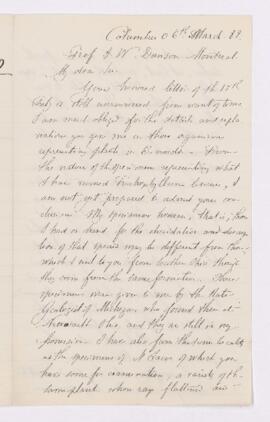 Columbus O 6th March 89.
Prof J. W. Dawson Montreal.
My dear Sir.
Your received letter of the 17th
July is still unanswered from want of time
I am much obliged for the details and expla
nations you give me on those organisms
representing plants or Rhizocarps. From
the nature of the specimen representing what
I have named
I am
not yet prepared to admit your con
clusion. My specimens however, that is, those
I had on hand for the elucidation and descrip
tion of that species may be different from those
which I sent to you from Ohio though
they come from the same formation. Those
specimens were given to me by the State
Geologist of Michigan who found them at
Ohio, and they are still in my
possession. I have also from the same locality
as the specimens of of which you
have some for examination, a variety of the
same plant whose rays flattened are